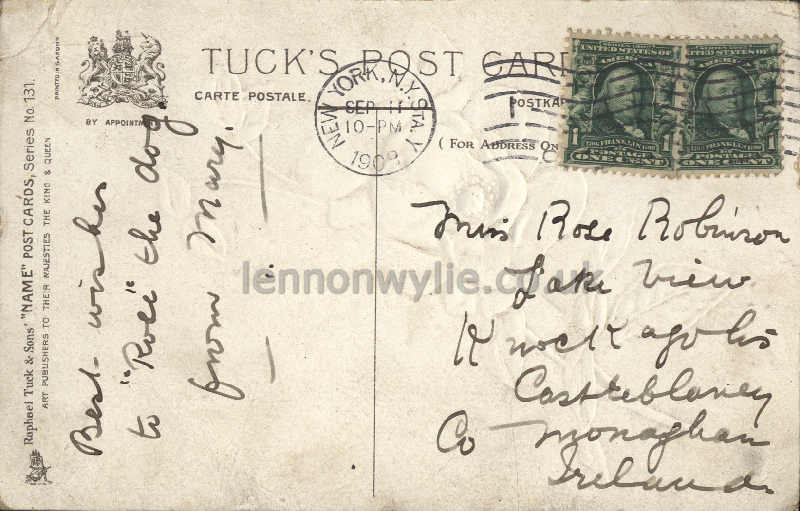 TUCK'S POST CARD
CARTE POSTALE.
POSTKAR
(FOR ADDRESS ON
BY APPOINTMENT
PRINTED IN SAXONY
Raphael Tuck & Sons' "NAME" POST CARDS, Series No. 131.
ART PUBLISHERS TO THEIR MAJESTIES THE KING & QUEEN
NEW YORK, N.Y. STA. Y
SEP 11
10-PM
1908
SERIES 1902
UNITED STATES OF AMERICA
1 FRANKLIN 1
POSTAGE
ONE CENT
SERIES 1902
UNITED STATES OF AMERICA
1 FRANKLIN 1
POSTAGE
ONE CENT
Best wishes
to "Rose" the dog
from Mary.
Miss Rose Robinson
Lake View
Knockagolis
Castleblaney
Co Monaghan
Ireland.
lennonwylie.co.uk